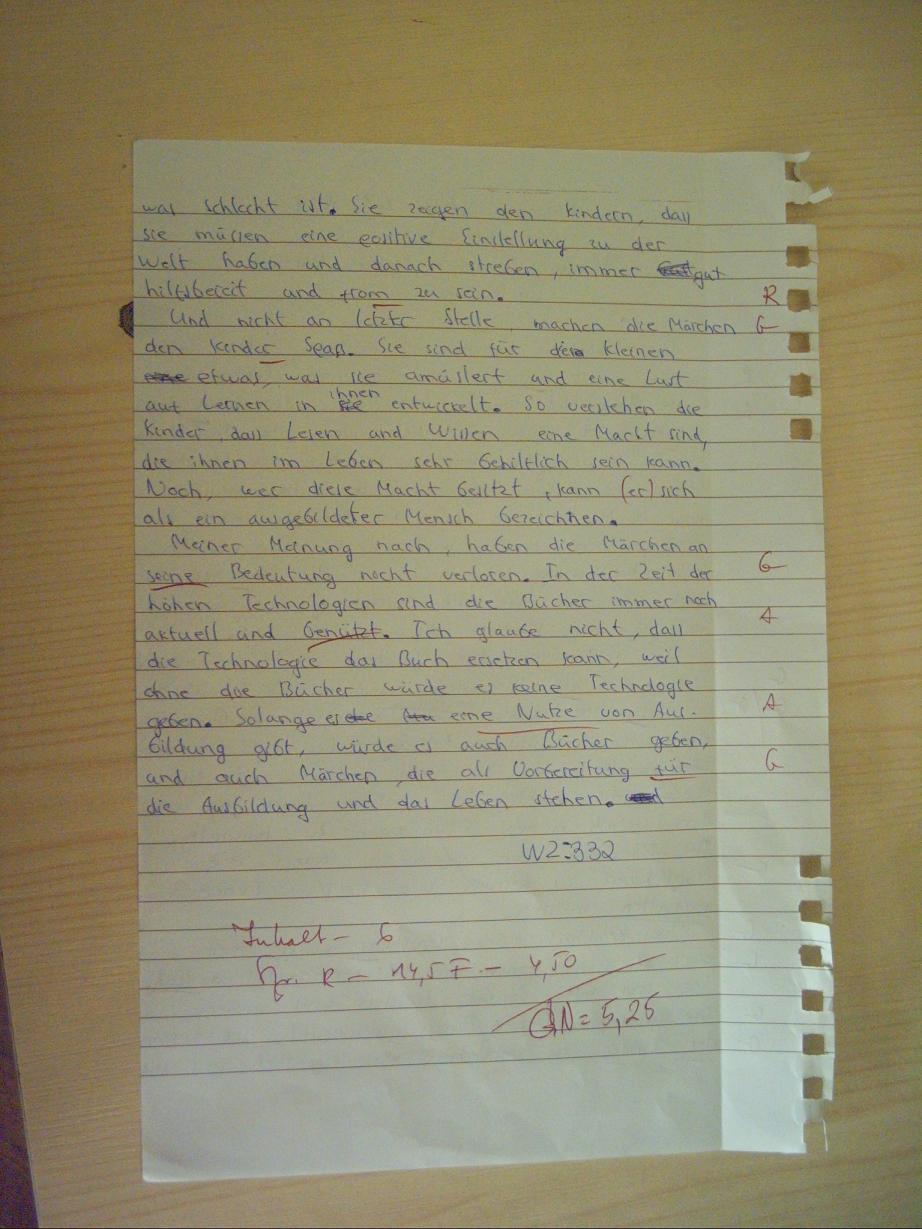 was schlecht ist. Sie zeigen den Kindern, dass
sie müssen eine positive Einstellung zu der
Welt haben und danach streben, immer gut
hilfsbereit und from zu sein. R
Und nicht an letzter Stelle, machen die Märchen G
den Kinder Spaß. Sie sind für die kleinen
etwas, was sie amüssert und eine Lust
auf Lernen in ihnen entwickelt. So verstehen die
Kinder, dass Lesen and Wissen eine Macht sind,
die ihnen im Leben sehr behilflich sein kann.
Noch, wer diese Macht besitzt, kann (er) sich
als ein ausgebildeter Mensch bezeichnen.
Meiner Meinung nach, haben die Märchen an
seine Bedeutung nocht verloren. In der Zeit der G
höhen Technologien sind die Bücher immer noch
aktuell and benützt. Ich glaube nicht, dass A
die Technologie das Buch ersetzen kann, weil
ohne die Bücher würde es keine Technologie
geben. Solange es eine Nutze von Aus- A
bildung gibt, würde es auch Bücher geben,
and auch Märchen, die als Vorbereitung für G
die Ausbildung und das Leben stehen.
WZ:332
Inhalt - 6
Spr. R - 14,5 F - 4,50
GN = 5,25